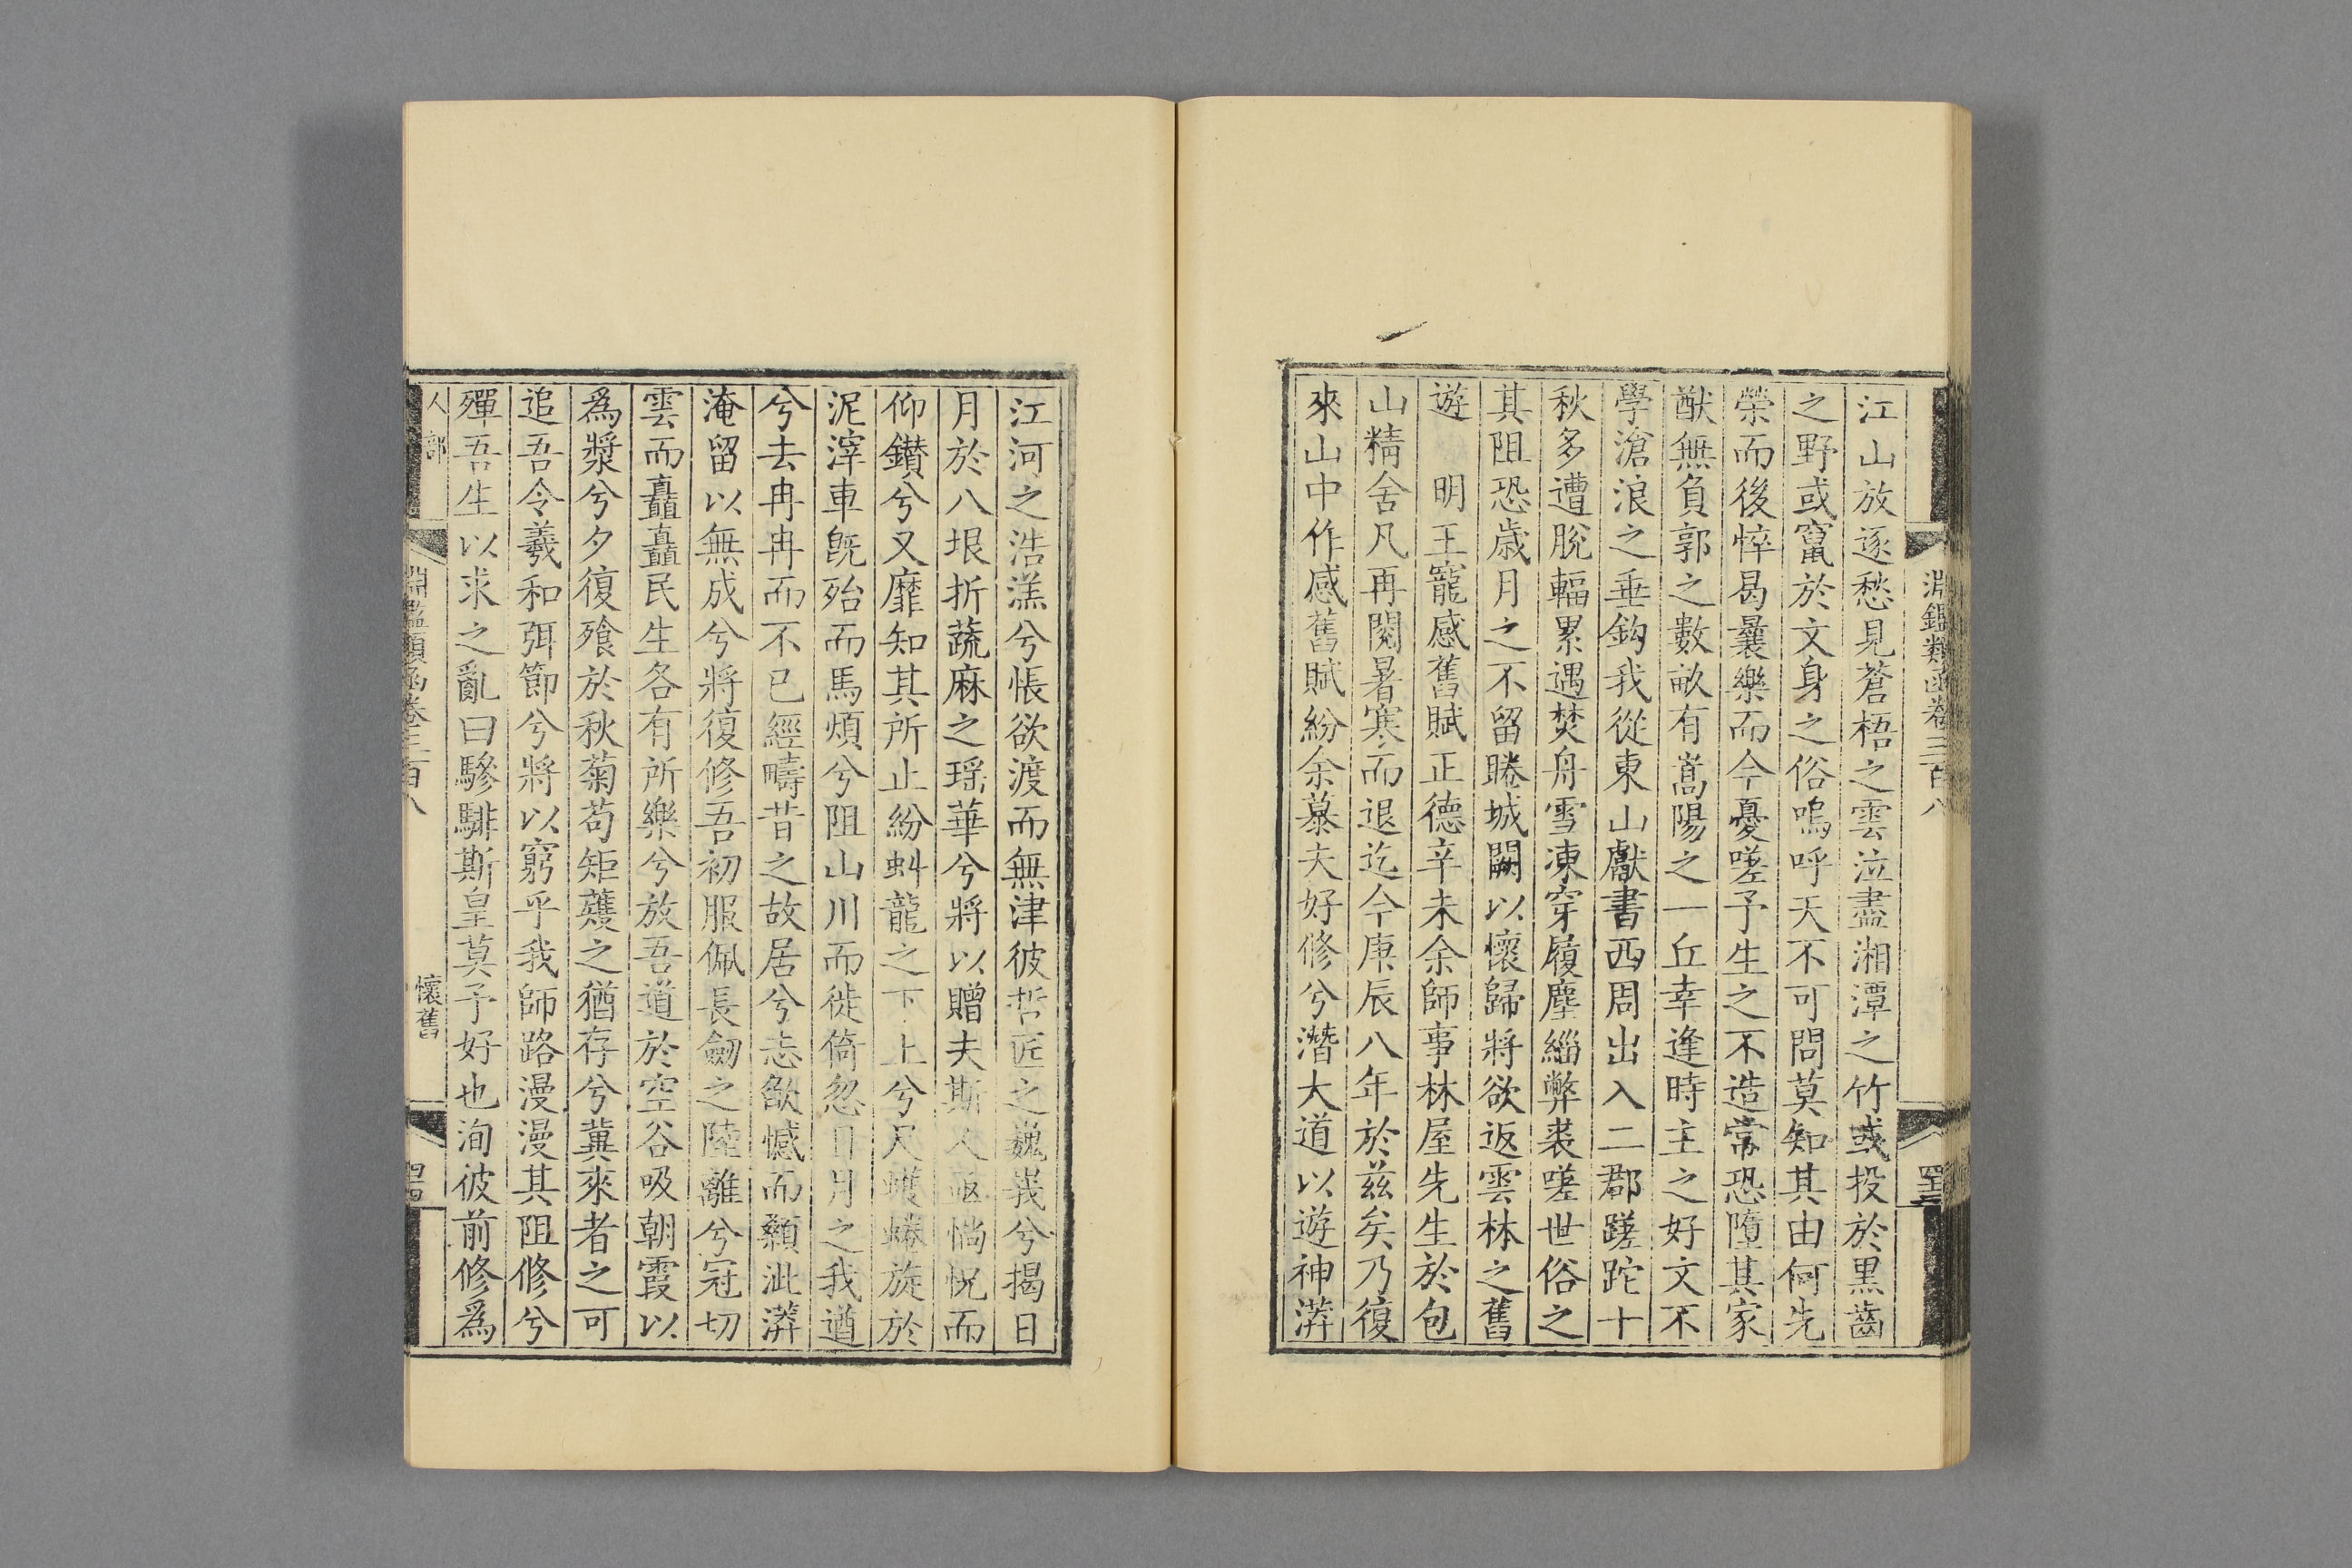 淵鑑類函卷三百八
江山放逐愁見蒼梧之雲泣盡湘潭之竹或投於黒齒
之野或竄於文身之俗嗚呼天不可問莫知其由何先
榮而後悴曷曩樂而今憂嗟予生之不造常恐墮其家
猷無負郭之數畝有嵩陽之一丘幸逢時主之好文不
學滄浪之垂鈎我從東山獻書西周出入二郡蹉跎十
秋多遭脫輻累遇焚舟雪凍穿履塵緇弊裘嗟世俗之
其阻恐歲月之不留睠城闕以懷歸將欲返雲林之舊
遊 明王寵感舊賦正德辛未余師事林屋先生於包
山精舍凡再閱暑寒而退迄今庚辰八年於茲矣乃復
來山中作感舊賦紛余慕夫好修兮潛大道以遊神漭
江河之浩渼兮悵欲渡而無津彼哲匠之巍峩兮揭日
月於八垠折蔬麻之瑶華兮將以贈夫斯人極惝怳而
仰鑚兮又靡知其所止紛虯龍之下上兮尺蠖蜷旋於
泥滓車旣殆而馬煩兮阻山川而徙倚忽日月之我遒
兮去冉冉而不已經疇昔之故居兮志欿憾而顙泚漭
淹留以無成兮將復修吾初服佩長劒之陸離兮冠切
雲而矗矗民生各有所樂兮放吾道於空谷吸朝霞以
爲漿兮夕復飱於秋菊苟矩蒦之猶存兮冀來者之可
追吾令羲和弭節兮將以窮乎我師路漫漫其阻修兮
殫吾生以求之亂曰驂騑斯皇莫予好也洵彼前修爲
人部
淵鑑類函卷三百八
懷舊